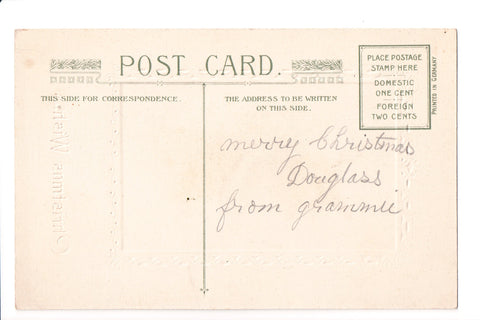 POST CARD.
THIS SIDE FOR CORRESPONDENCE.
THE ADDRESS TO BE WRITTEN
ON THIS SIDE.
PLACE POSTAGE
STAMP HERE
DOMESTIC
ONE CENT
FOREIGN
TWO CENTS
PRINTED IN GERMANY
merry Christmas
Douglass
from grammie
Christmas Wish